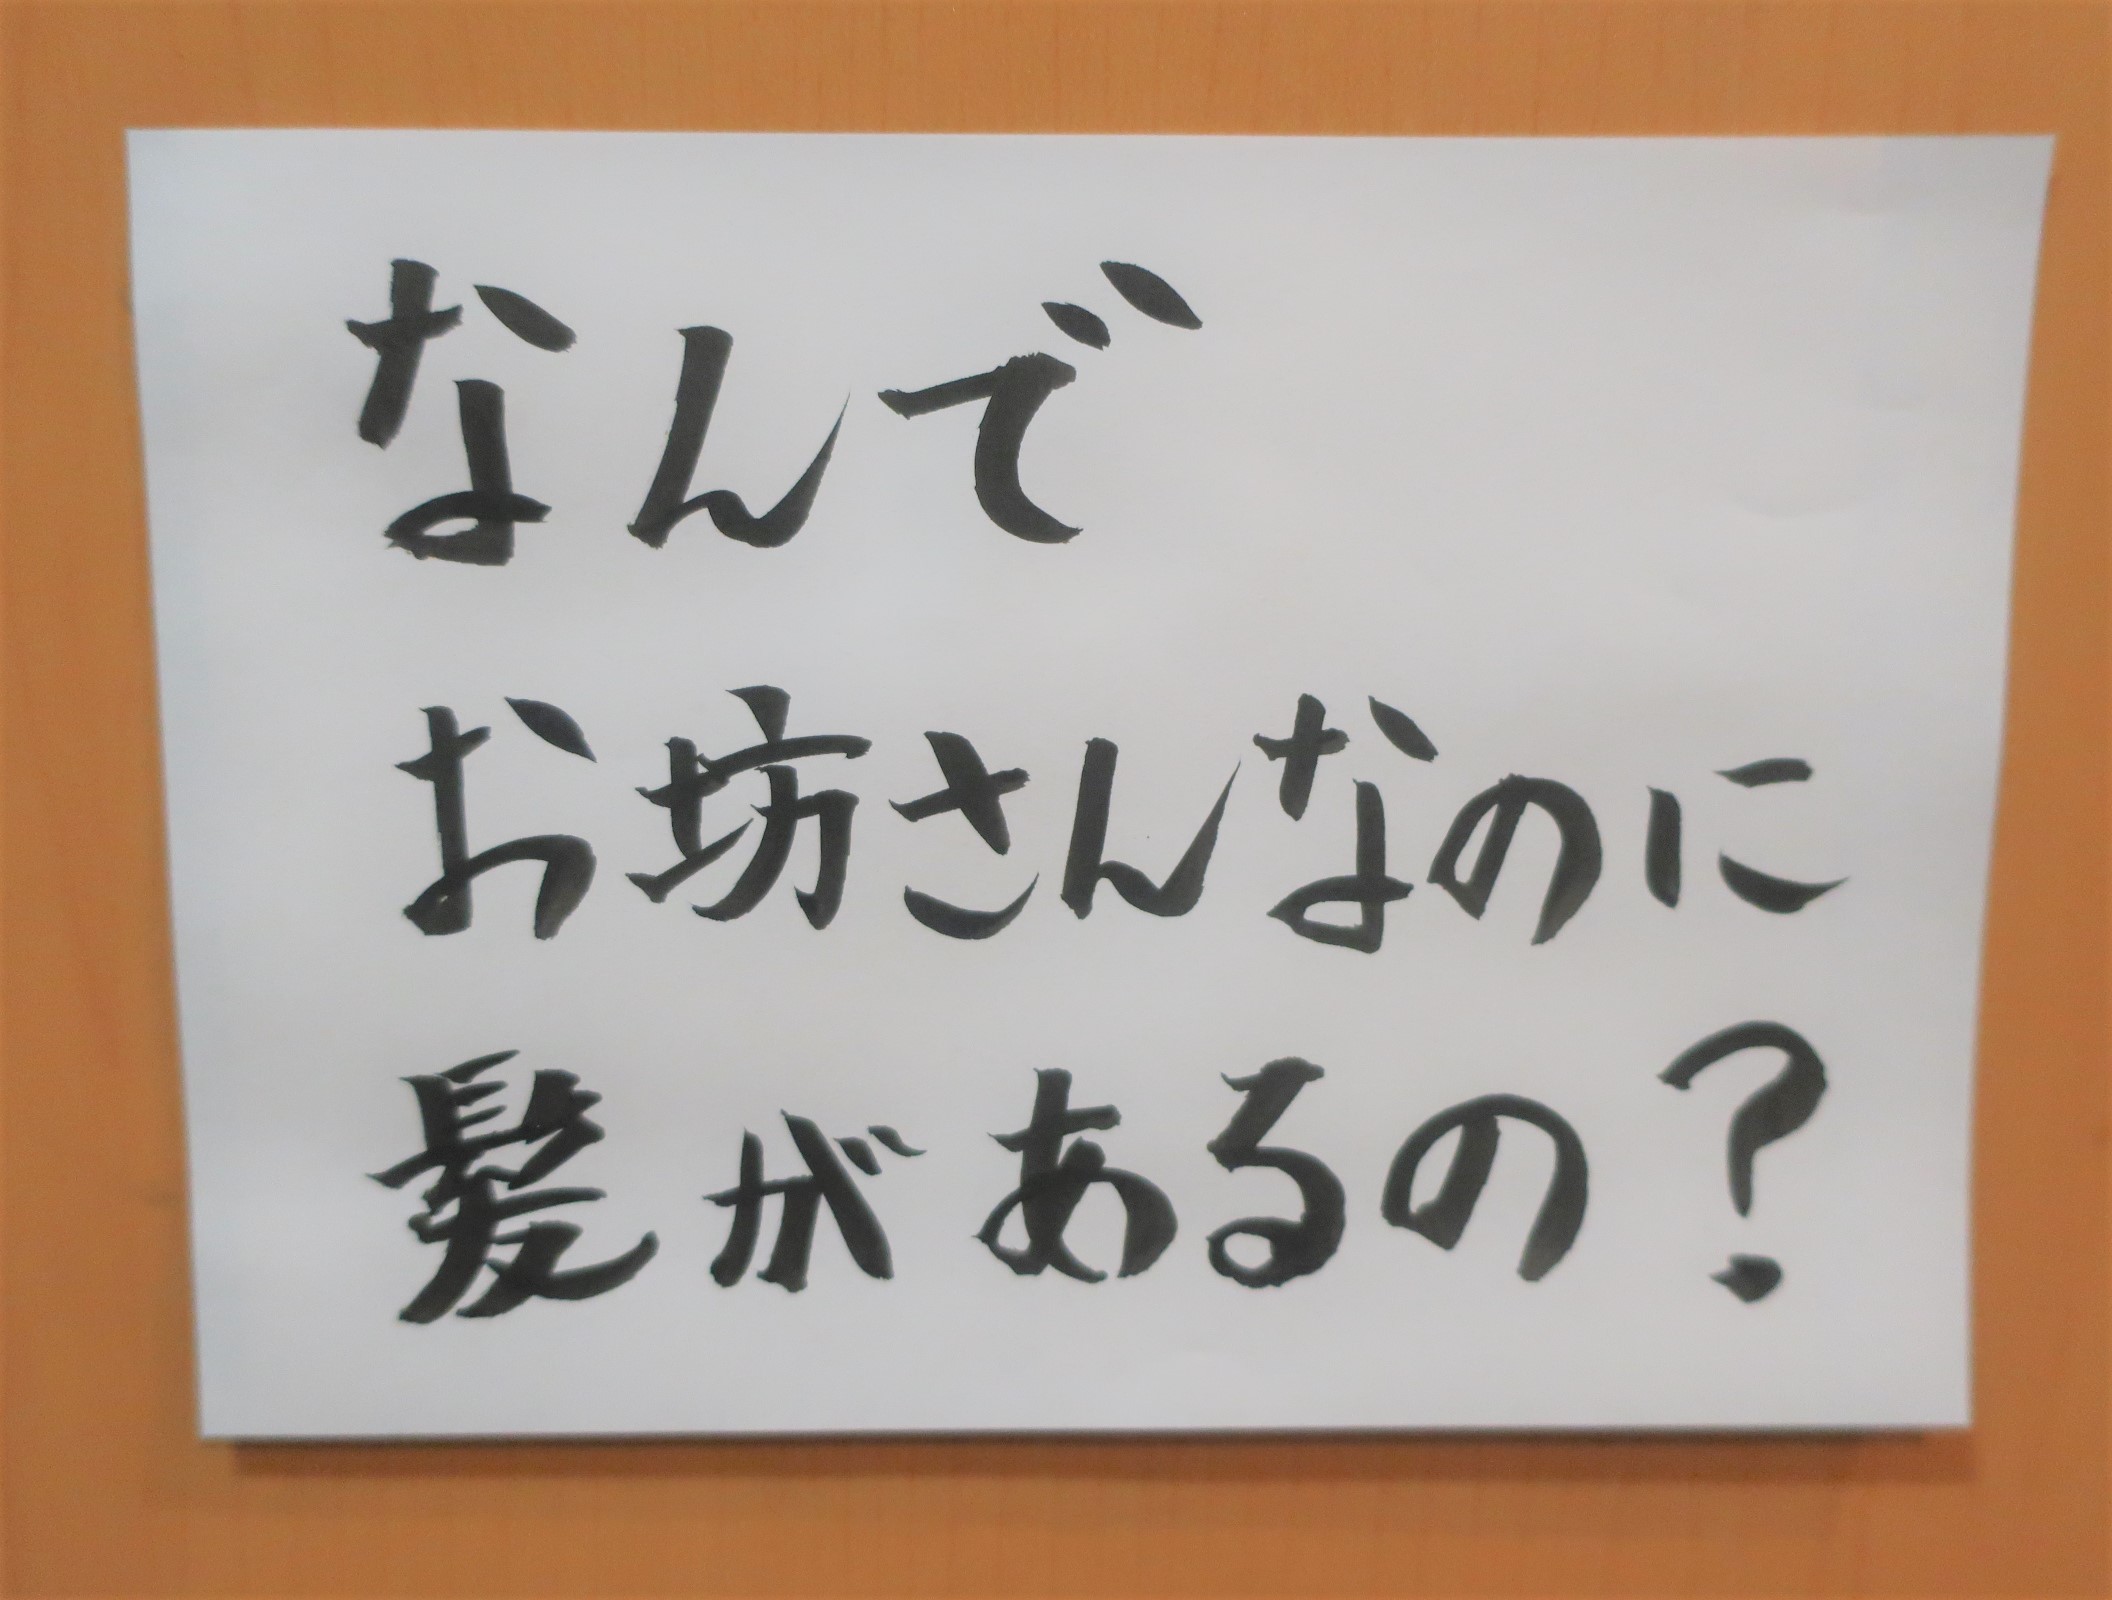 なんで
お坊さんなのに
髪があるの?